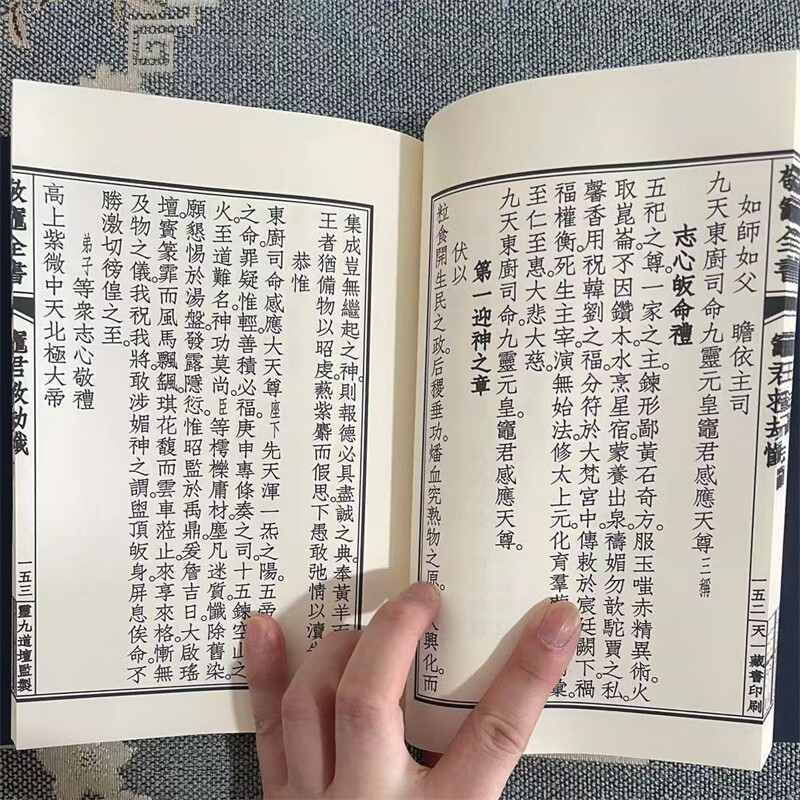 敬竈全書
竈君救劫懺
一五二
天一藏書印刷
如師如父 瞻依王司
九天東廚司命九靈元皇竈君感應天尊。三稱
志心皈命禮
五祀之尊。一家之主。鍊形鄙黃石奇方。服玉嗤赤精異術。火
取崑崙不因鑽木。水烹星宿。蒙養出泉。禱媚勿歆駝賈之私。
馨香用祝韓劉之福。分符於大梵宮中。傳敕於宸廷闕下。禍
福權衡。死生主宰。演無始法。修太上元。化育羣
彙。
至仁至惠。大悲大慈。
九天東廚司命九靈元皇竈君感應天尊。
第一迎神之章
伏以
粒食開生民之政。后稷垂功。燔血究熟物之原。
人興化。而
集成豈無繼起之神。則報德必具盡誠之典。奉黃羊而
王者猶備物以昭虔。爇紫麝而假思。下愚敢弛情以瀆
恭惟
東廚司命感應大天尊座下 先天渾一炁之陽。五帝
之命。罪疑惟輕。善積必福。庚申專條奏之司。十五鍊空山之
火。至道難名。神功莫尚。臣等樗櫟庸材。塵凡迷質。懺除舊染。
願懇惕於湯盤。發露隱愆。惟昭監於禹鼎。爰詹吉日。大啟瑤
壇。寶篆霏而風馬飄颻。琪花馥而雲車蒞止。來享來格。慚無
及物之儀。我祝我將。敢涉媚神之謂。盥頂皈身。屏息俟命。不
勝激切徬徨之至。
弟子等衆志心敬禮
高上紫微中天北極大帝
敬竈全書
竈君救劫懺
一五三
靈九道壇監製